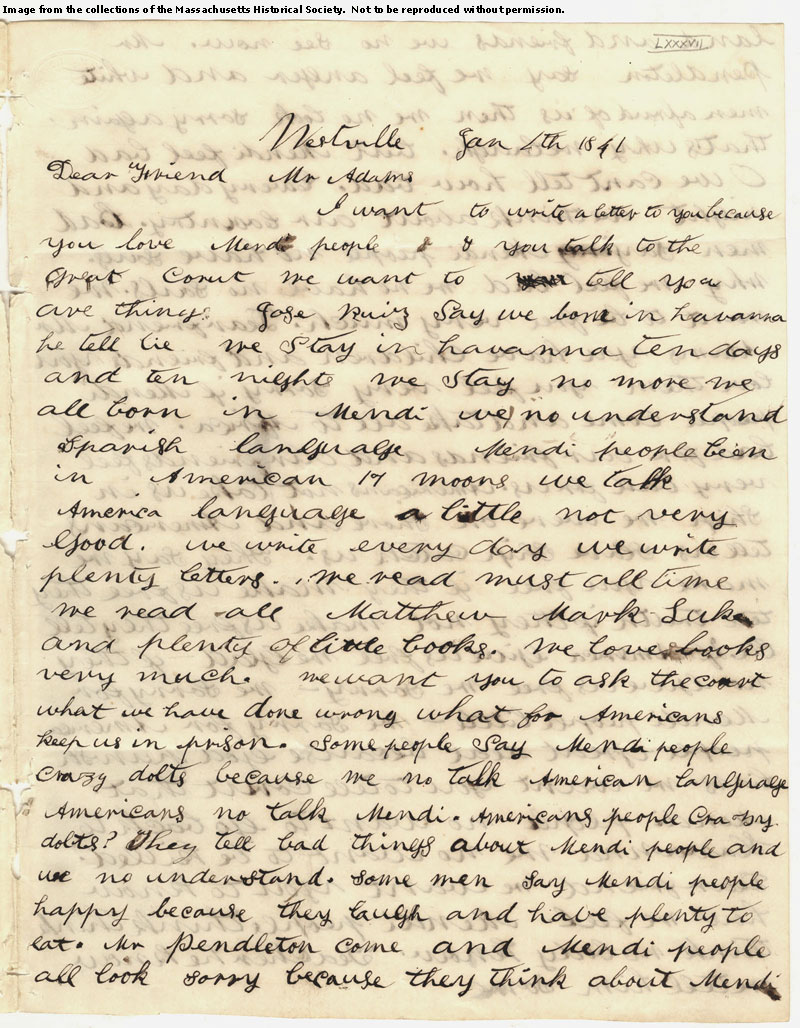 Image from the collections of the Massachusetts Historical Society. Not to be reproduced without permission.
LXXXVII
Westville Jan 4th 1841
Dear Friend Mr Adams
I want to write a letter to you because
you love Mendi people & you talk to the
Great Corut we want to tell you
are things. Jose Ruiz Say we born in havanna
he tell lie we Stay in havanna ten days
and ten nights we stay no more we
all born in Mendi we no understand
Spanish language Mendi people been
in American 17 moons we talk
America language a little not very
Good. we write every day we write
plenty letters. we read must all time
we read all Matthew Mark Luke
and plenty of little books. We love books
very much. we want you to ask the court
what we have done wrong what for Americans
keep us in prison. Some people Say Mendi people
Crazy dolts because we no talk American language
Americans no talk Mendi. Americans people Crazy
dolts? They tell bad things about Mendi people and
we no understand. Some men say Mendi people
happy because they laugh and have plenty to
eat. Mr Pendleton come and Mendi people
all look sorry because they think about Mendi